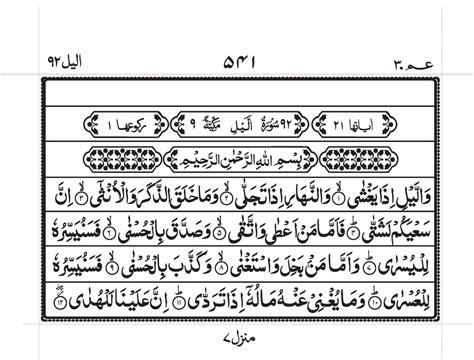 عـم ٣٠ ۵۴۱ اليل ٩٢
اٰیاتها ٢١ ٩٢ سُوْرَةُ الَّيْلِ مَكِّيَّةٌ ٩ رکوعها ١
بِسْمِ اللّٰهِ الرَّحْمٰنِ الرَّحِيْمِ
وَالَّيْلِ اِذَا يَغْشٰى ١ وَالنَّهَارِ اِذَا تَجَلّٰى ٢ وَمَا خَلَقَ الذَّكَرَ وَالْاُنْثٰٓى ٣ اِنَّ
سَعْيَكُمْ لَشَتّٰى ٤ فَاَمَّا مَنْ اَعْطٰى وَاتَّقٰى ٥ وَصَدَّقَ بِالْحُسْنٰى ٦ فَسَنُيَسِّرُهٗ
لِلْيُسْرٰى ٧ وَاَمَّا مَنْۢ بَخِلَ وَاسْتَغْنٰى ٨ وَكَذَّبَ بِالْحُسْنٰى ٩ فَسَنُيَسِّرُهٗ
لِلْعُسْرٰى ١٠ وَمَا يُغْنِيْ عَنْهُ مَالُهٗٓ اِذَا تَرَدّٰى ١١ اِنَّ عَلَيْنَا لَلْهُدٰى ١٢
منزل ٧